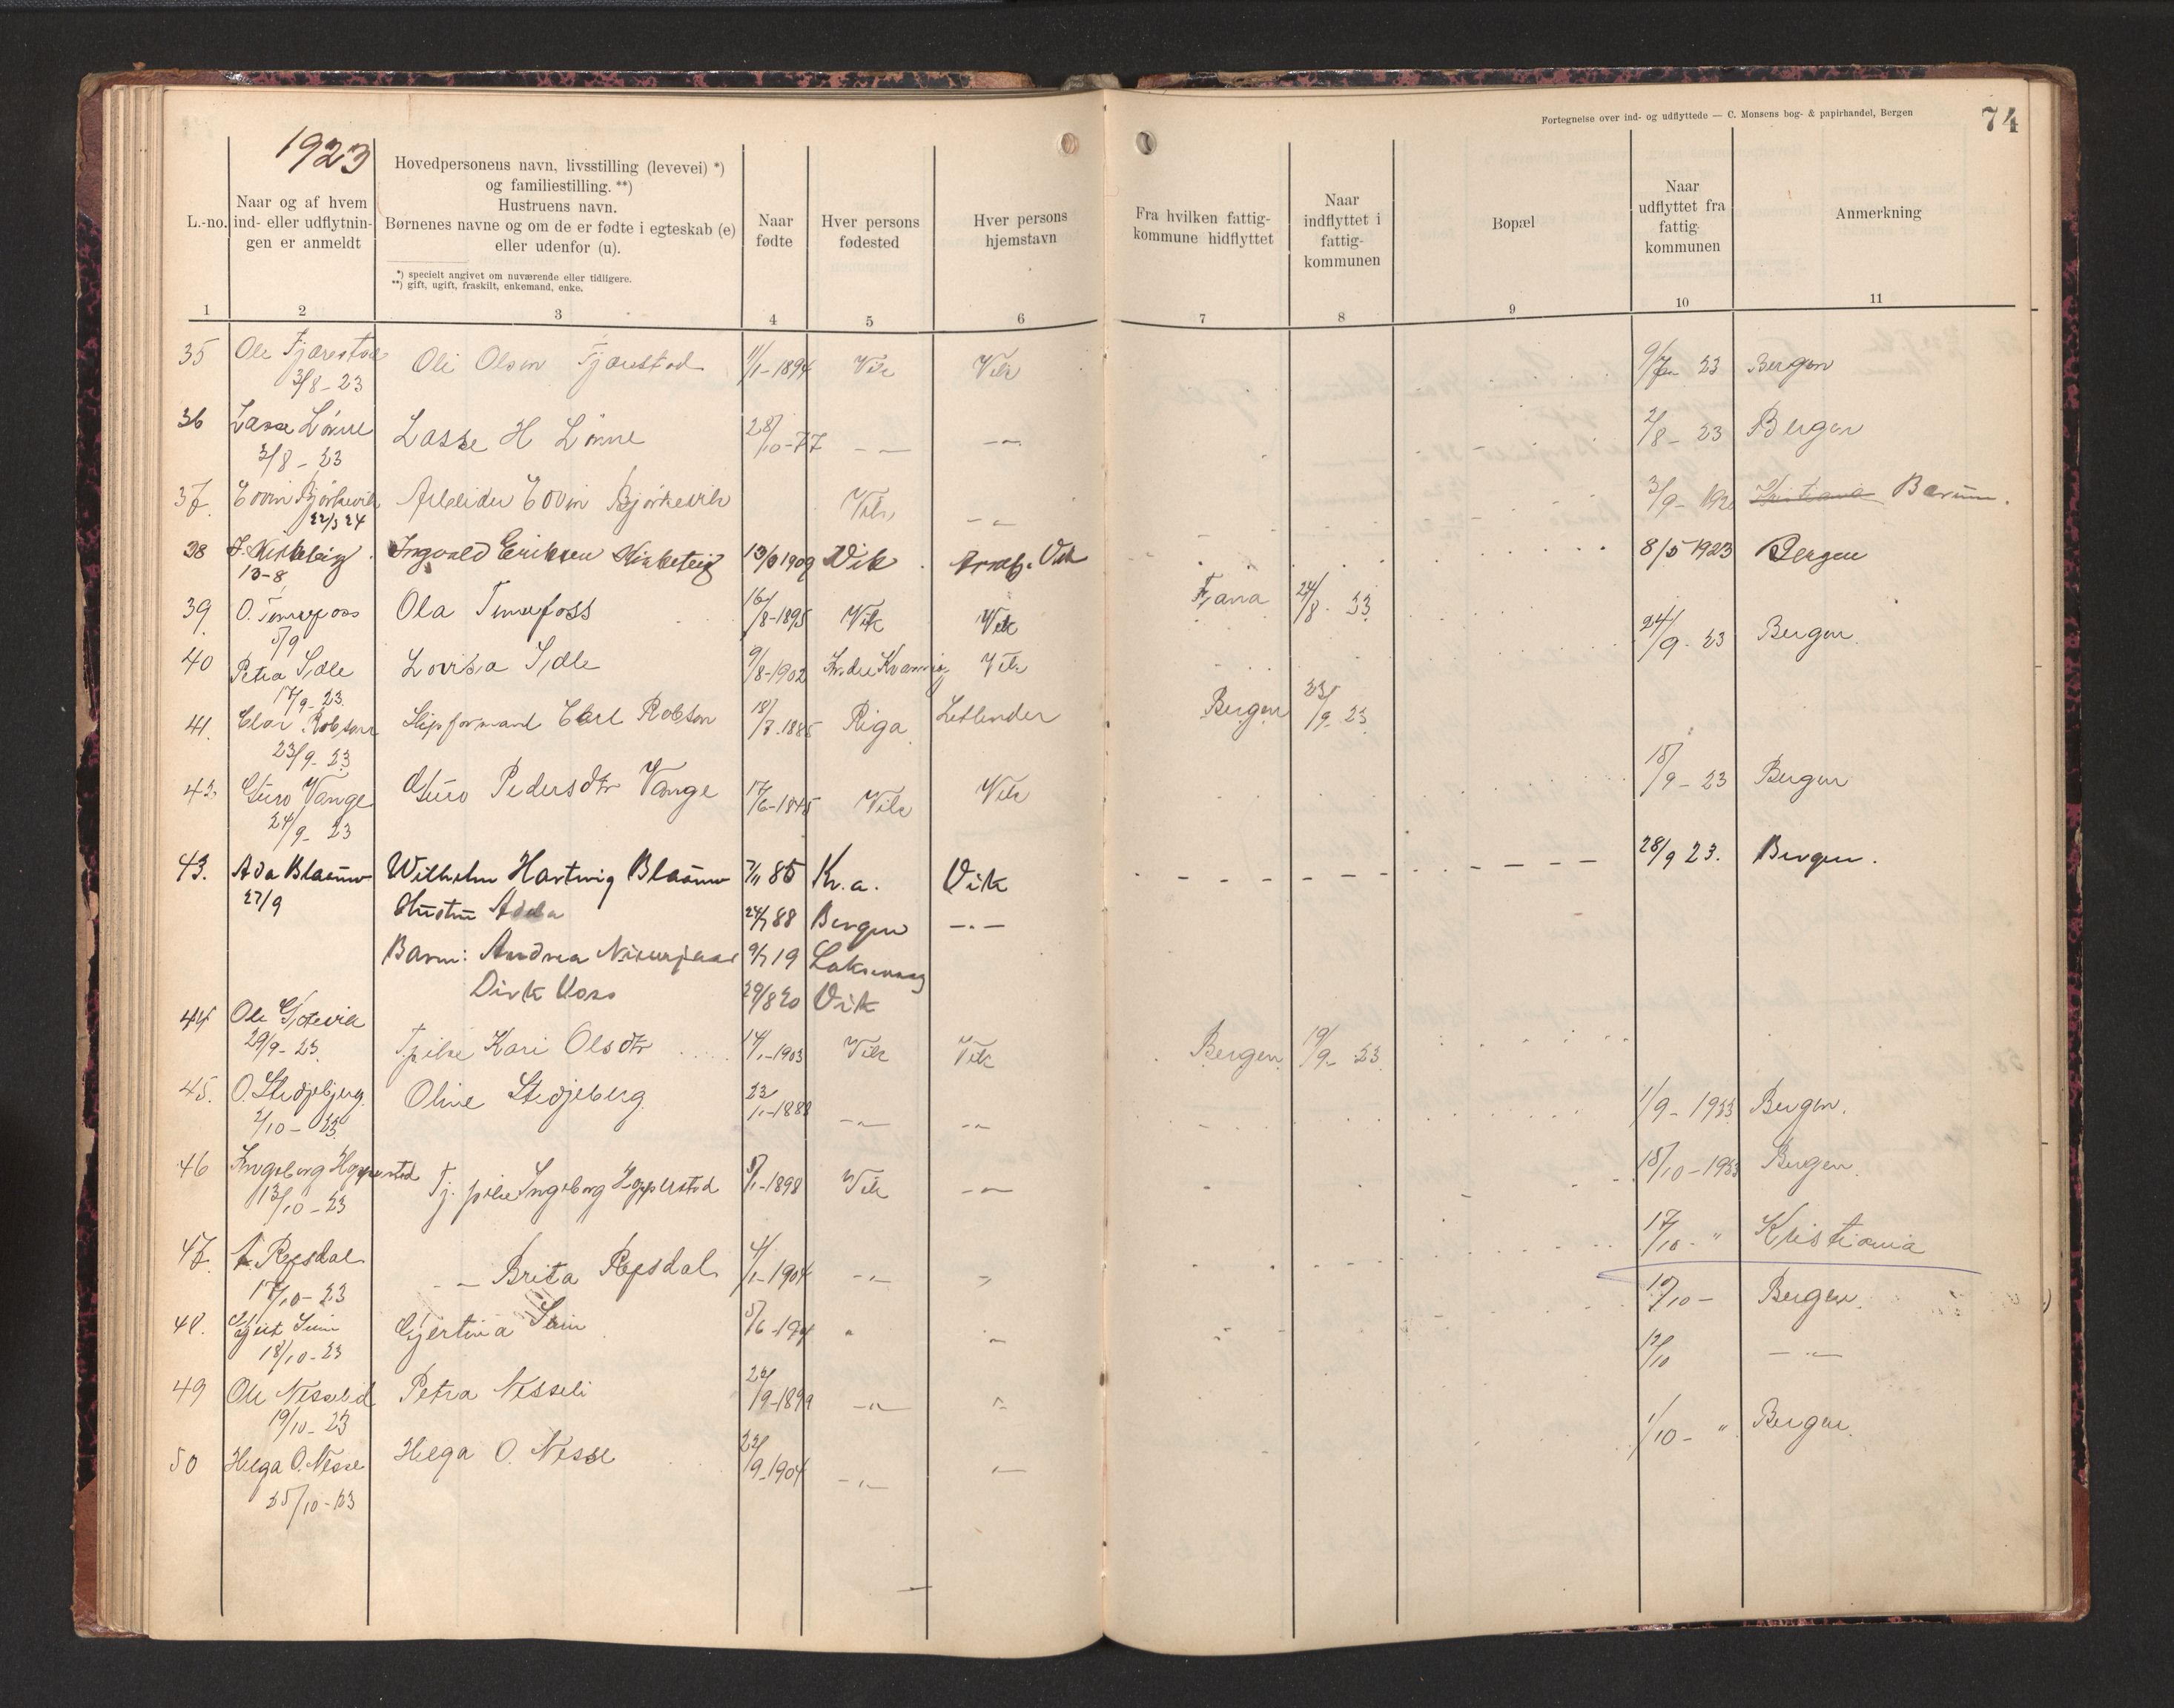 Fortegnelse over ind- og udflyttede — C. Monsens bog- & papirhandel, Bergen
74
1923
L.-no.
Naar og af hvem ind- eller udflytnin- gen er anmeldt
Hovedpersonens navn, livsstilling (levevei) *)
og familiestilling. **)
Hustruens navn.
Børnenes navne og om de er fødte i egteskab (e)
eller udenfor (u).
*) specielt angivet om nuværende eller tidligere.
**) gift, ugift, fraskilt, enkemand, enke.
Naar fødte
Hver persons fødested
Hver persons hjemstavn
Fra hvilken fattig- kommune hidflyttet
Naar indflyttet i fattig- kommunen
Bopæl
Naar udflyttet fra fattig- kommunen
Anmerkning
1 2 3 4 5 6 7 8 9 10 11
35 Ole Tjærestad Ole Olsen Tjærestad 11/1-1894 Vik Vik 9/7 23 Bergen
3/8-23
36 Lasse Lønne Lasse H Lønne 28/10-77 - - -"- 2/8-23 Bergen
3/8-23
37. Eddin Bjørkevik Arbeider Eddin Bjørkevik Vik -"- 3/9- Kristiania Bærum.
22/3 24
38 Hinketeig Ingvald Eriksen Hinketeig 1909 Vik Vik 8/5 1923 Bergen
13-8
39. O. Tenefoss Ola Tenefoss 16/8-1895 Vik Vik Fana 24/8-23
5/9
40 Petra Sæle Lovisa Sæle 9/8-1902 Indre Kvamsøy Vik 24/9-23 Bergen.
17/9-23
41. Robson Skipformand Carl Robson 18/7-1885 Riga Letlender Bergen 23/9-23
23/9-23
42. Guro Vange Guro Pedersdtr Vange 17/6-1845 Vik Vik 18/9-23 Bergen
24/9-23
43. Ada Blaauw Wilhelm Hartwig Blaauw 7/11 85 Kr.a. Vik 28/9 23. Bergen.
27/9 Hustru Adda 24/7 88 Bergen -"-
Barn: Andrea 9/7 19 Laksevaag
Dirk Voss 29/8 20 Vik
44 Ole
29/9-23. Tj.pike Kari Olsdtr 14/1-1903 Vik Vik Bergen 19/9-23
45. O. Stedjeberg Oline Stedjeberg 23/1-1888 -"- -"- 1/9-1923 Bergen.
2/10-23
46 Ingeborg Hopperstad Tj. pike Ingeborg Hopperstad 5/1-1898 Vik -"- 18/10-1923 Bergen.
13/10-23
47 A. Repsdal - - Brita Repsdal 4/1-1904 -"- " 17/10-" Kristiania
17/10-23
48. Gjert Seim Gjertina Seim 5/6 " " 19/10- Bergen.
18/10-23
12/10 -"-
49 Ole Nesseli Petra Nesseli 9-1899 -"- "
19/10-23
50 Helga O. Nesse Helga O. Nesse 22/9-1904 -"- " 1/10-" Bergen.
25/10-23